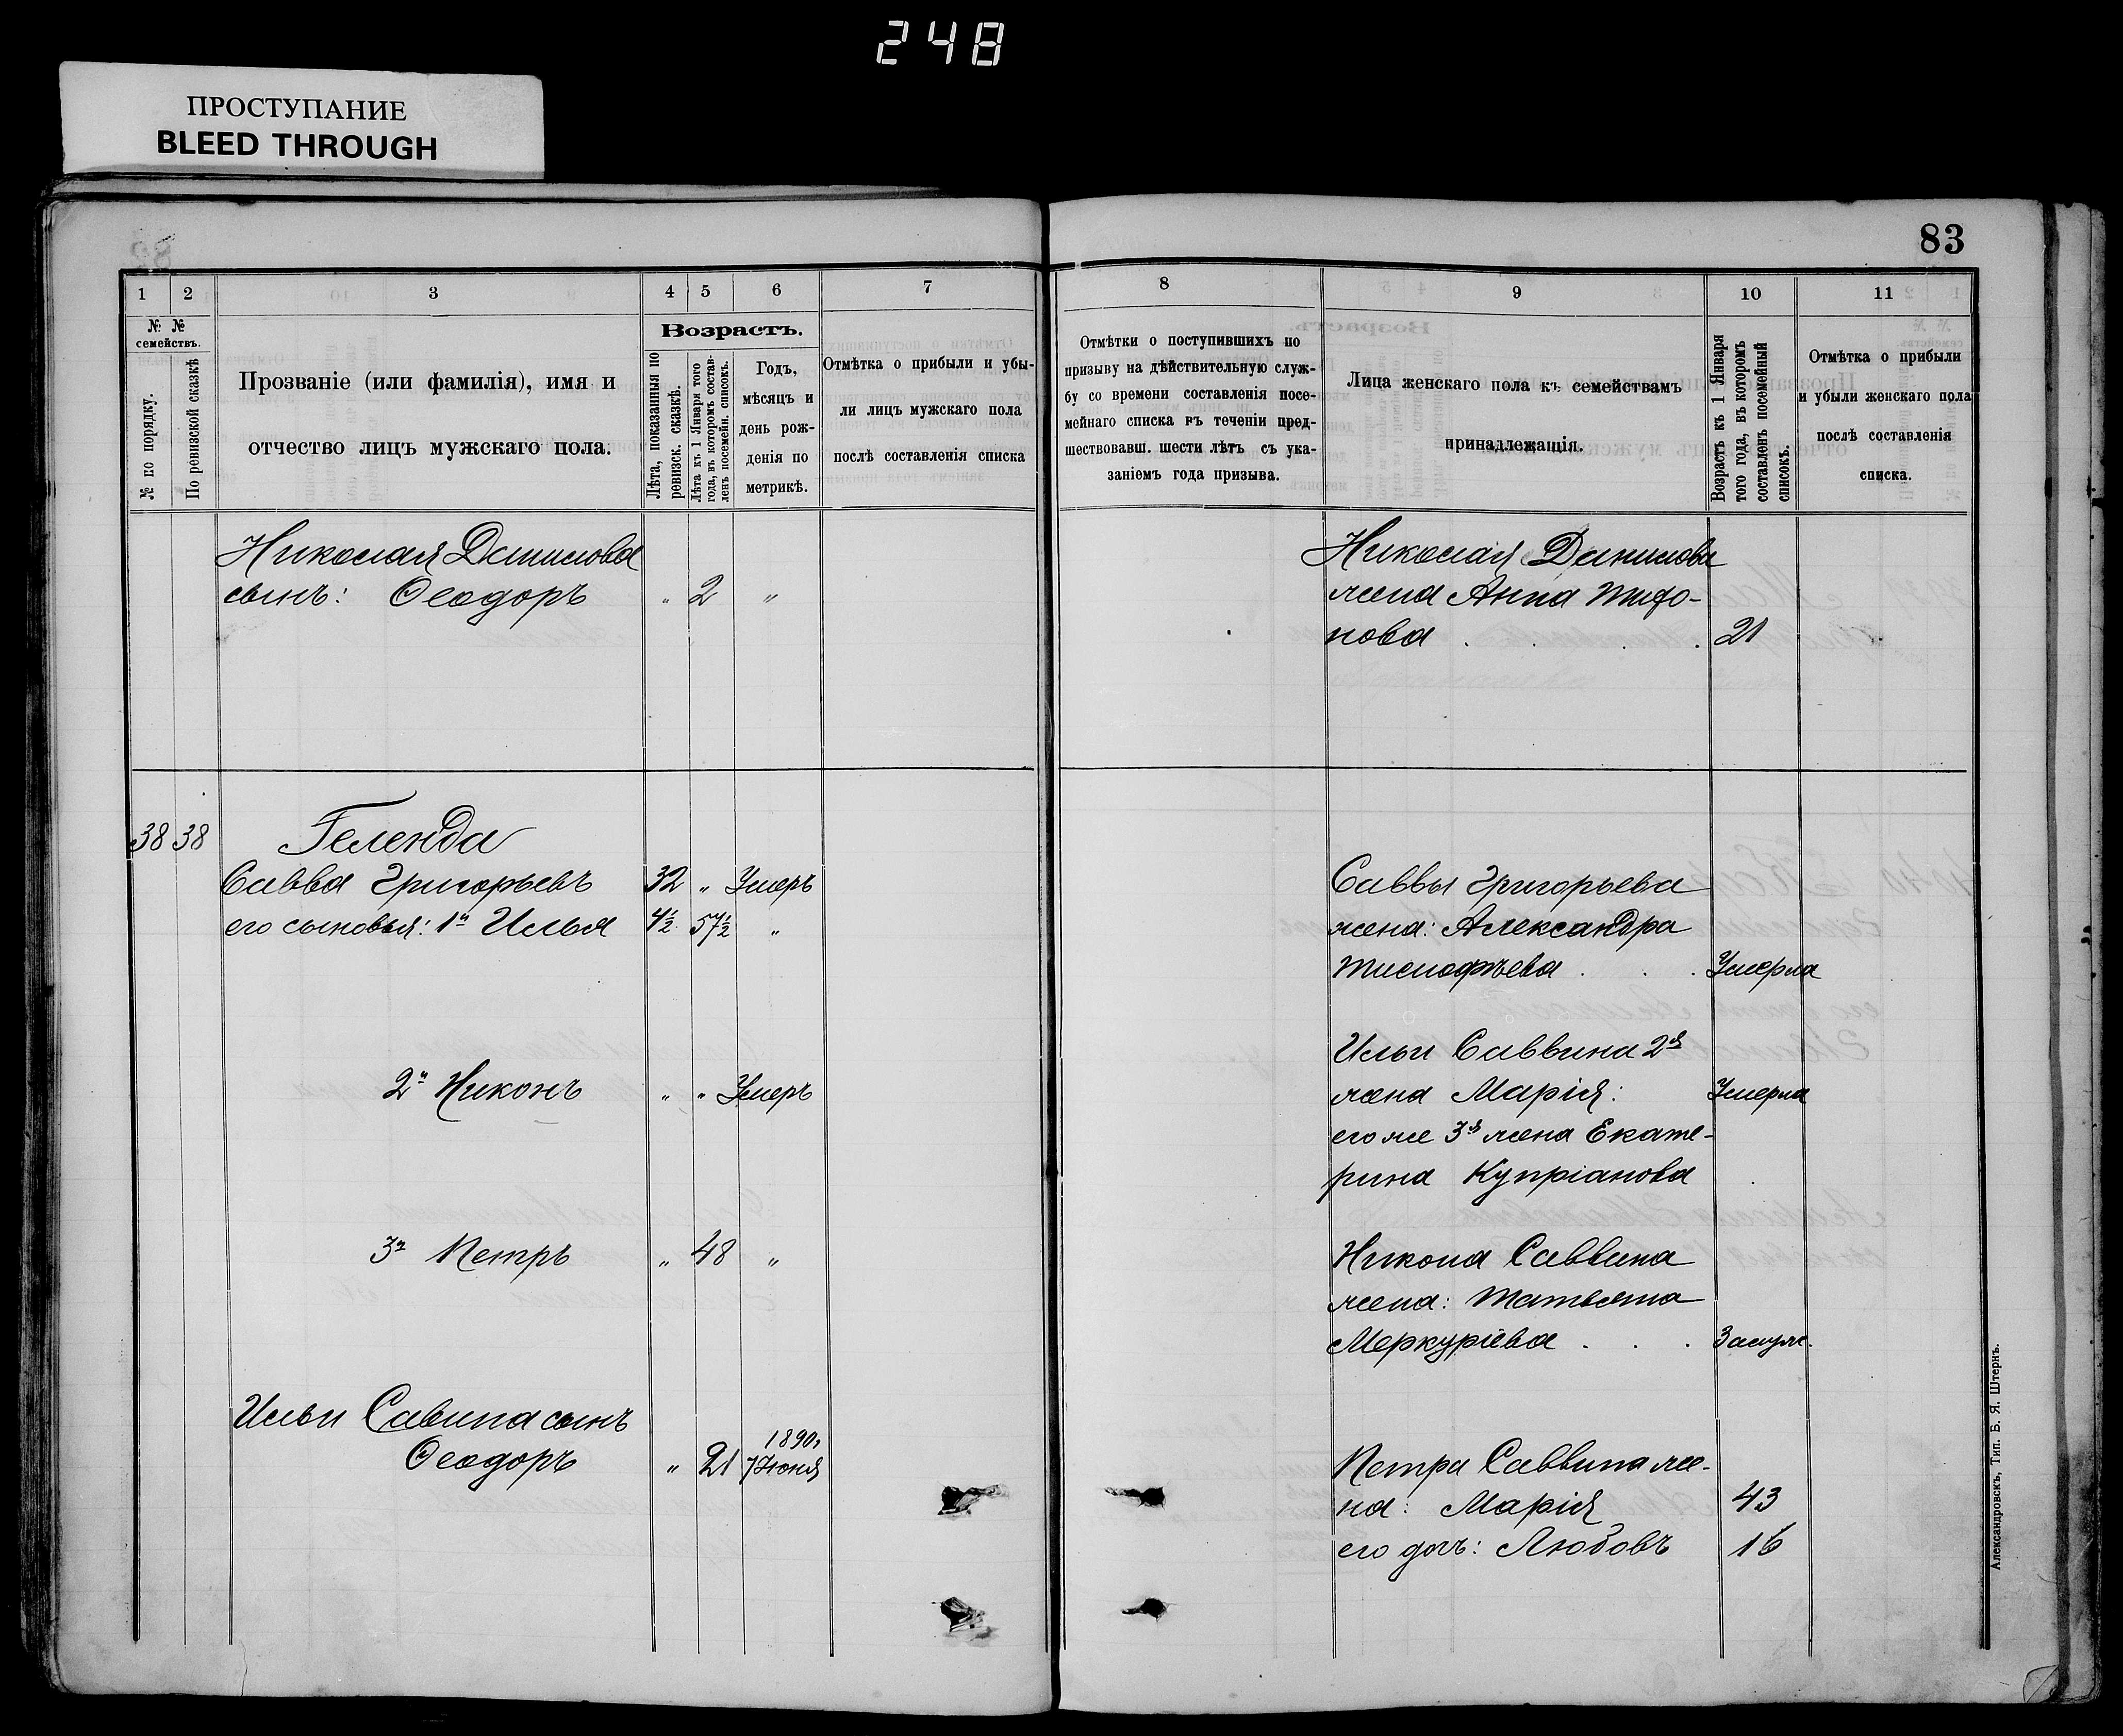 248
ПРОСТУПАНИЕ
BLEED THROUGH
83
1 2 3 4 5 6 7
№ № семействъ.
№ по порядку.
По ревизской сказкѣ
Прозваніе (или фамилія), имя и
отчество лицъ мужскаго пола.
Возрастъ.
Лѣта, показанныя по
ревизск. сказкѣ.
Лѣта къ 1 Января того
года, въ которомъ состав-
ленъ посемейн. списокъ.
Годъ,
мѣсяцъ и
день рож-
денія по
метрикѣ.
Отмѣтка о прибыли и убы-
ли лицъ мужскаго пола
послѣ составленія списка
Николая Данилова
сынъ: Ѳеодоръ " 2 "
38 38 Геленда
Савва Григорьевъ 32 " Умеръ
его сыновья: 1й Илья 4½ 57½ "
2й Никонъ " " Умеръ
3й Петръ " 48 "
Ильи Савина сынъ
Ѳеодоръ " 21 1890,
7 Июня
8 9 10 11
Отмѣтки о поступившихъ по
призыву на дѣйствительную служ-
бу со времени составленія посе-
мейнаго списка въ теченіи пред-
шествовавш. шести лѣтъ съ ука-
заніемъ года призыва.
Лица женскаго пола къ семействамъ
принадлежащія.
Возрастъ къ 1 Января
того года, въ которомъ
составленъ посемейный
списокъ.
Отмѣтка о прибыли
и убыли женскаго пола
послѣ составленія
списка.
Николая Данилова
жена Анна
21
Саввы Григорьева
жена: Александра
Тимофѣева . . . Умерла
Ильи Саввина 2я
жена Марія: Умерла
его же 3я жена Екате-
рина Купріанова
Никона Саввина
жена: Татьяна
Меркуріева . . . Замуж.
Петра Саввина же-
на: Марія 43
его дочь: Любовь 16
Александровскъ, Тип. Б. Я. Штернъ.